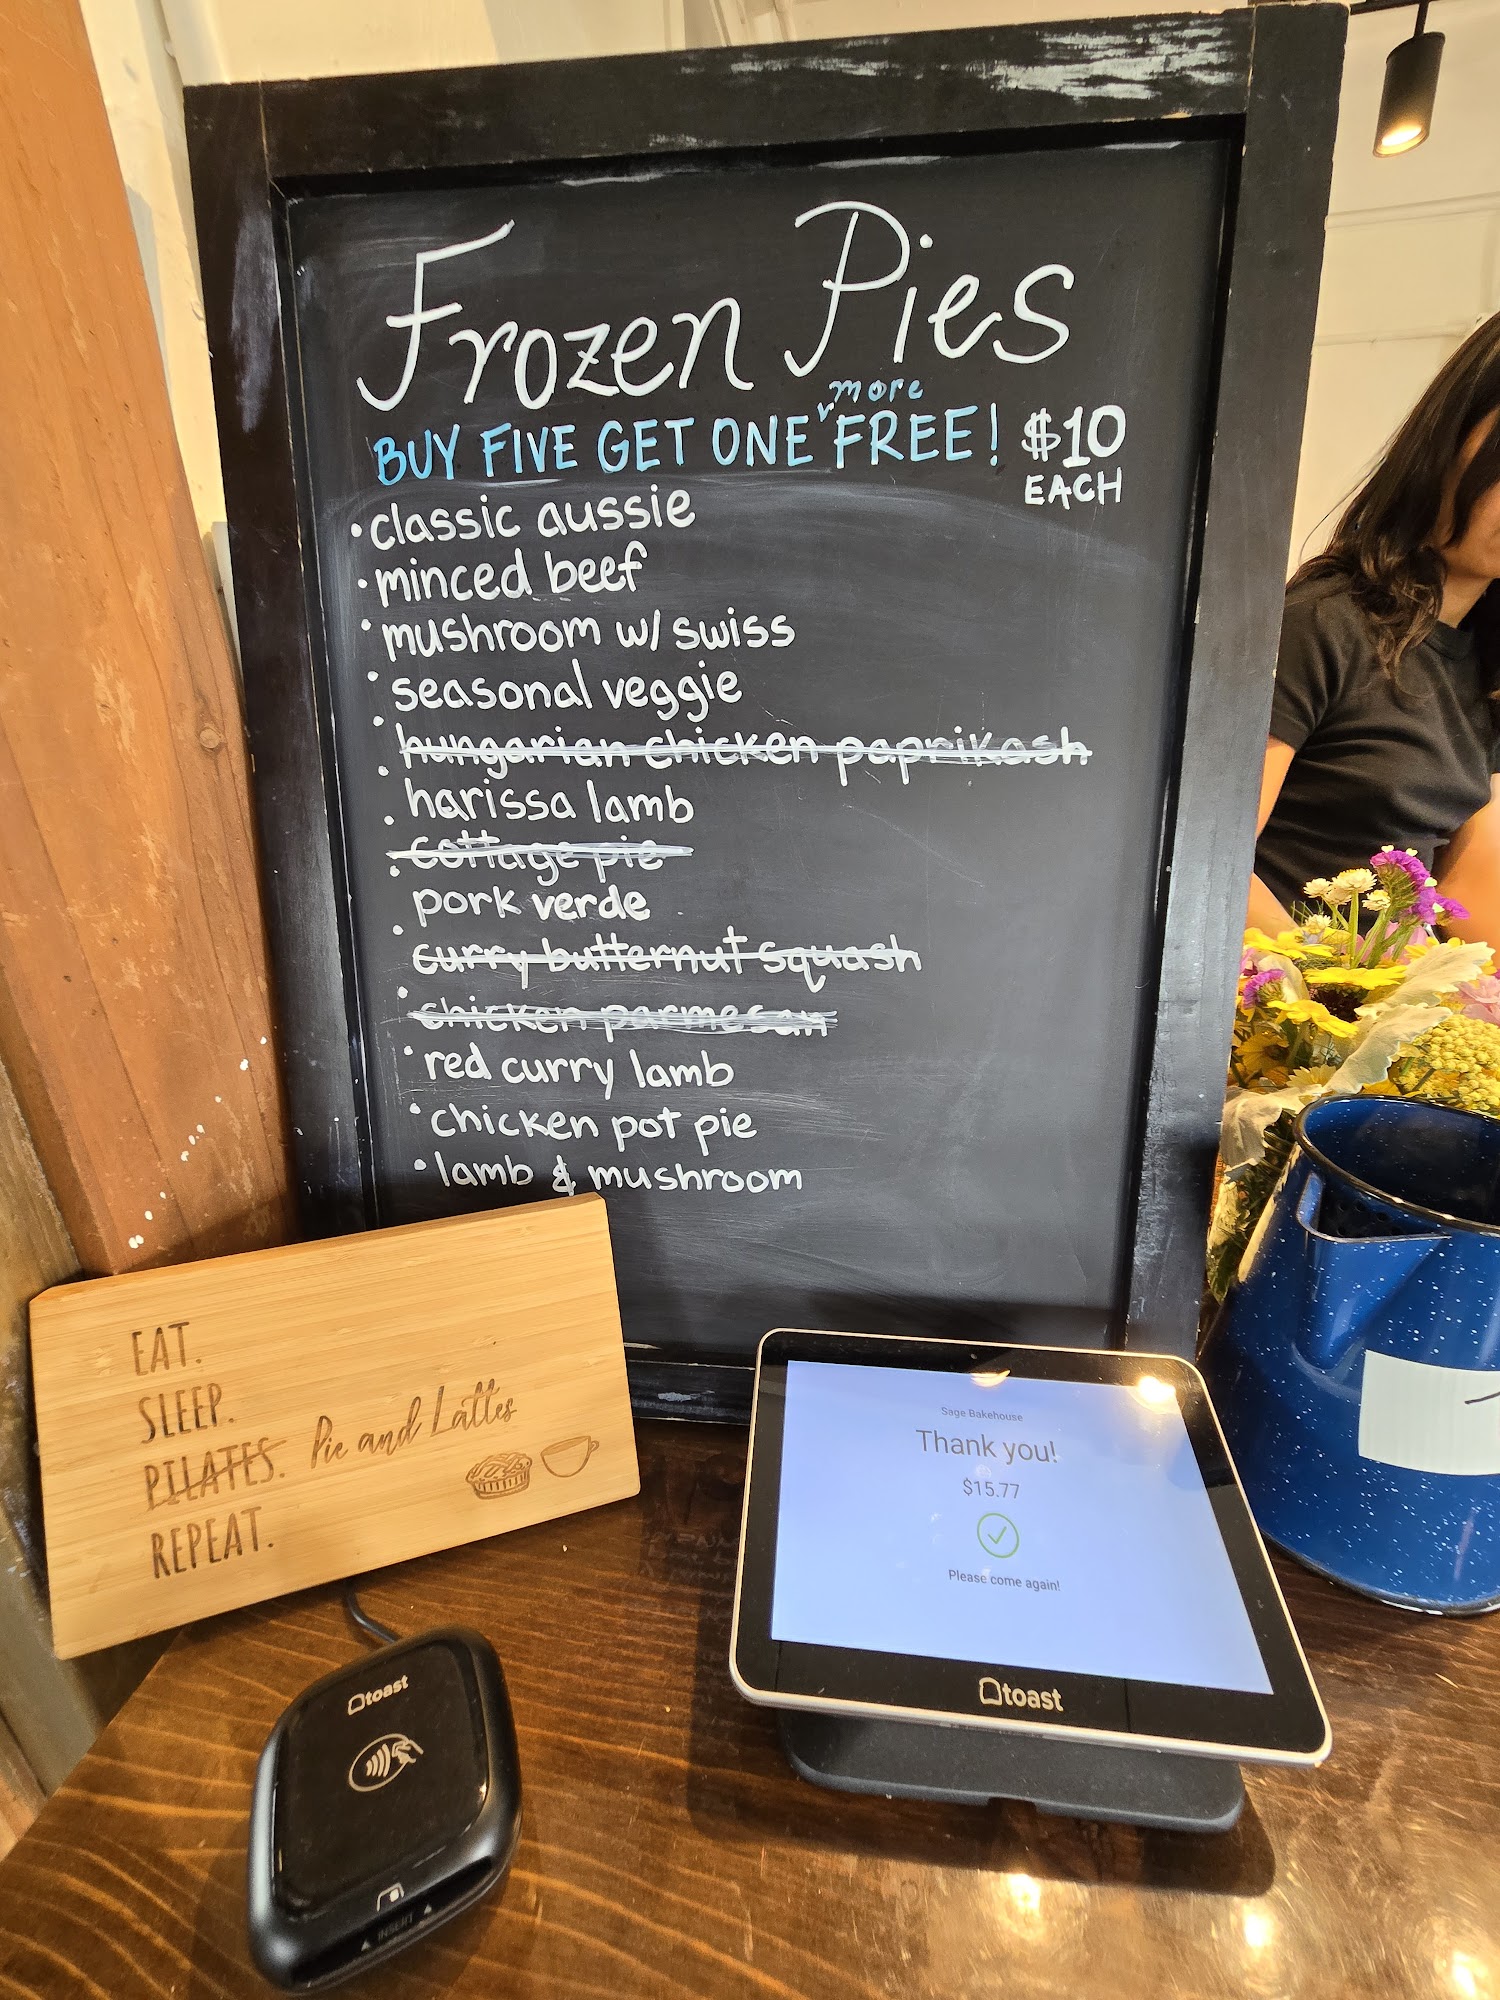 Frozen Pies
more
BUY FIVE GET ONE FREE! $10
EACH
• classic aussie
• minced beef
• mushroom w/ swiss
• seasonal veggie
• hungarian chicken paprikash
• harissa lamb
• cottage pie
• pork verde
• curry butternut squash
• chicken parmesan
• red curry lamb
• chicken pot pie
• lamb & mushroom
EAT.
SLEEP.
PILATES. Pie and Lattes
REPEAT.
Sage Bakehouse
Thank you!
$15.77
Please come again!
toast
toast
INSERT